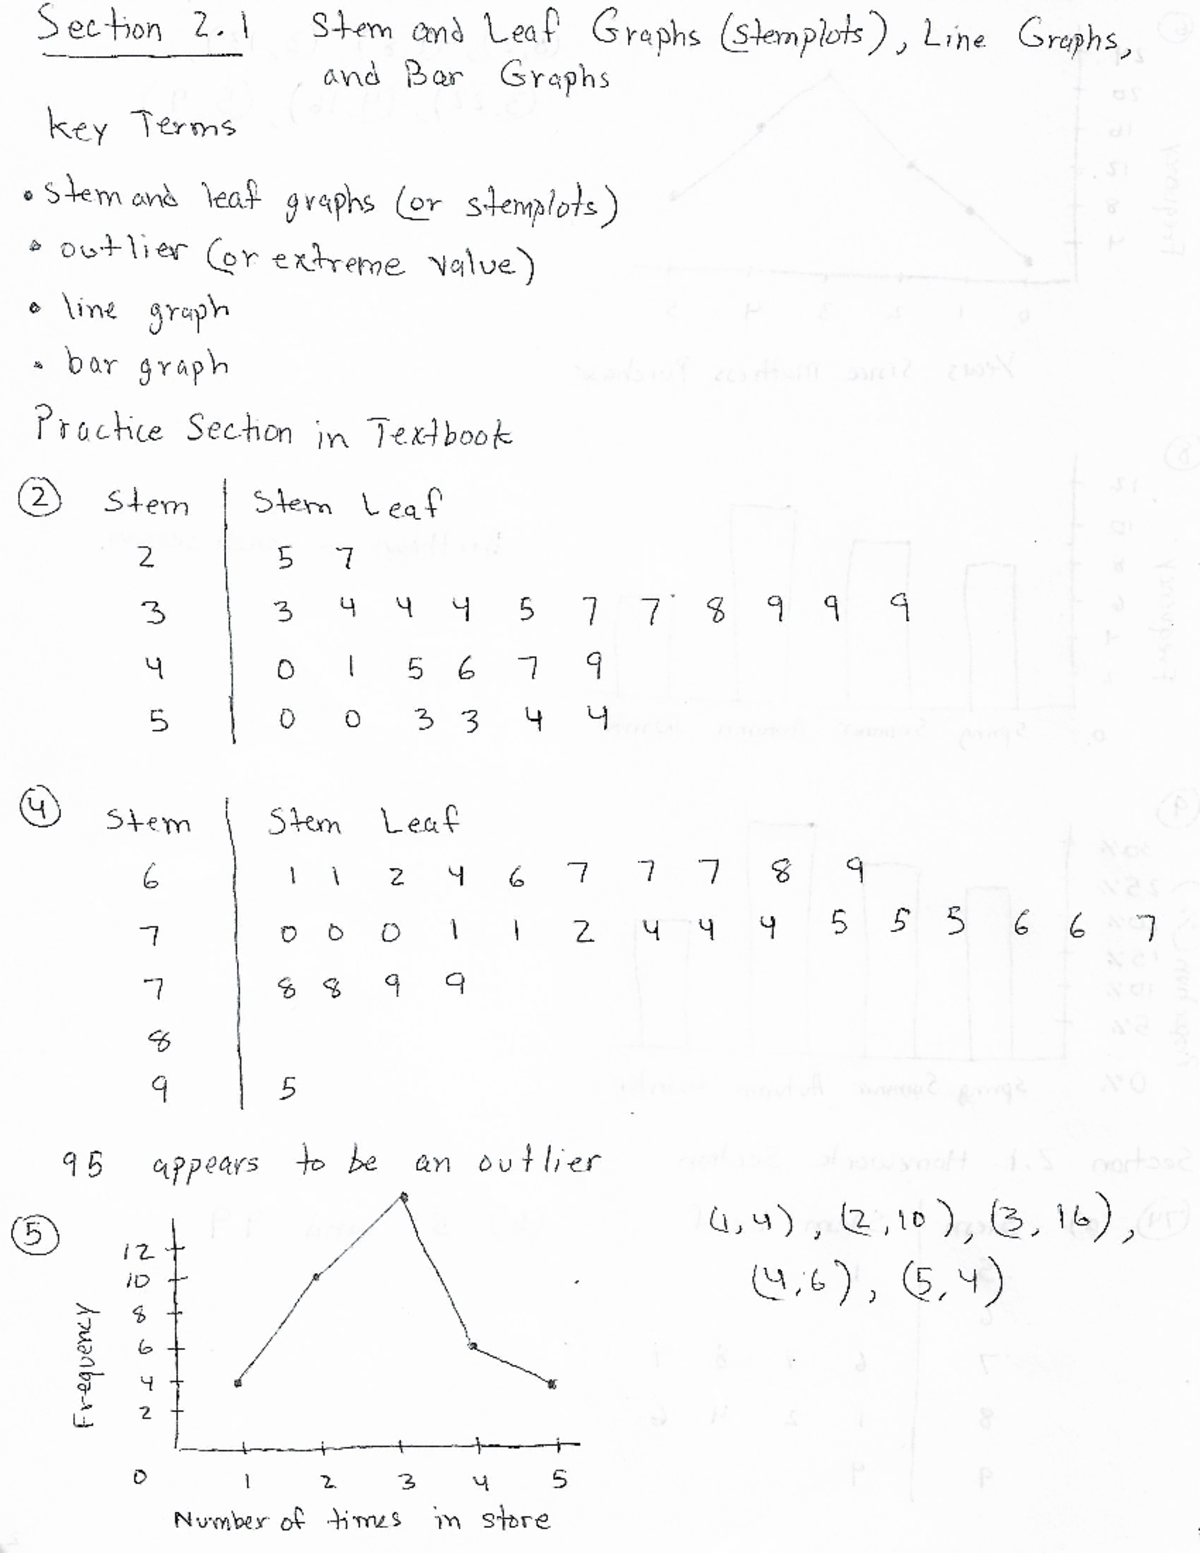 Section 2.1 Stem and Leaf Graphs (Stemplots), Line Graphs,
and Bar Graphs
Key Terms
• Stem and leaf graphs (or stemplots)
• outlier (or extreme value)
• line graph
• bar graph
Practice Section in Textbook
② Stem | Stem Leaf
2 | 5 7
3 | 3 4 4 4 5 7 7 8 9 9 9
4 | 0 1 5 6 7 9
5 | 0 0 3 3 4 4
④ Stem | Stem Leaf
6 | 1 1 2 4 6 7 7 7 8 9
7 | 0 0 0 1 1 2 4 4 4 5 5 5 6 6 7
7 | 8 8 9 9
8 |
9 | 5
95 appears to be an outlier
⑤
(1,4), (2,10), (3,16),
(4,6), (5,4)
Frequency
12
10
8
6
4
2
0 1 2 3 4 5
Number of times in store